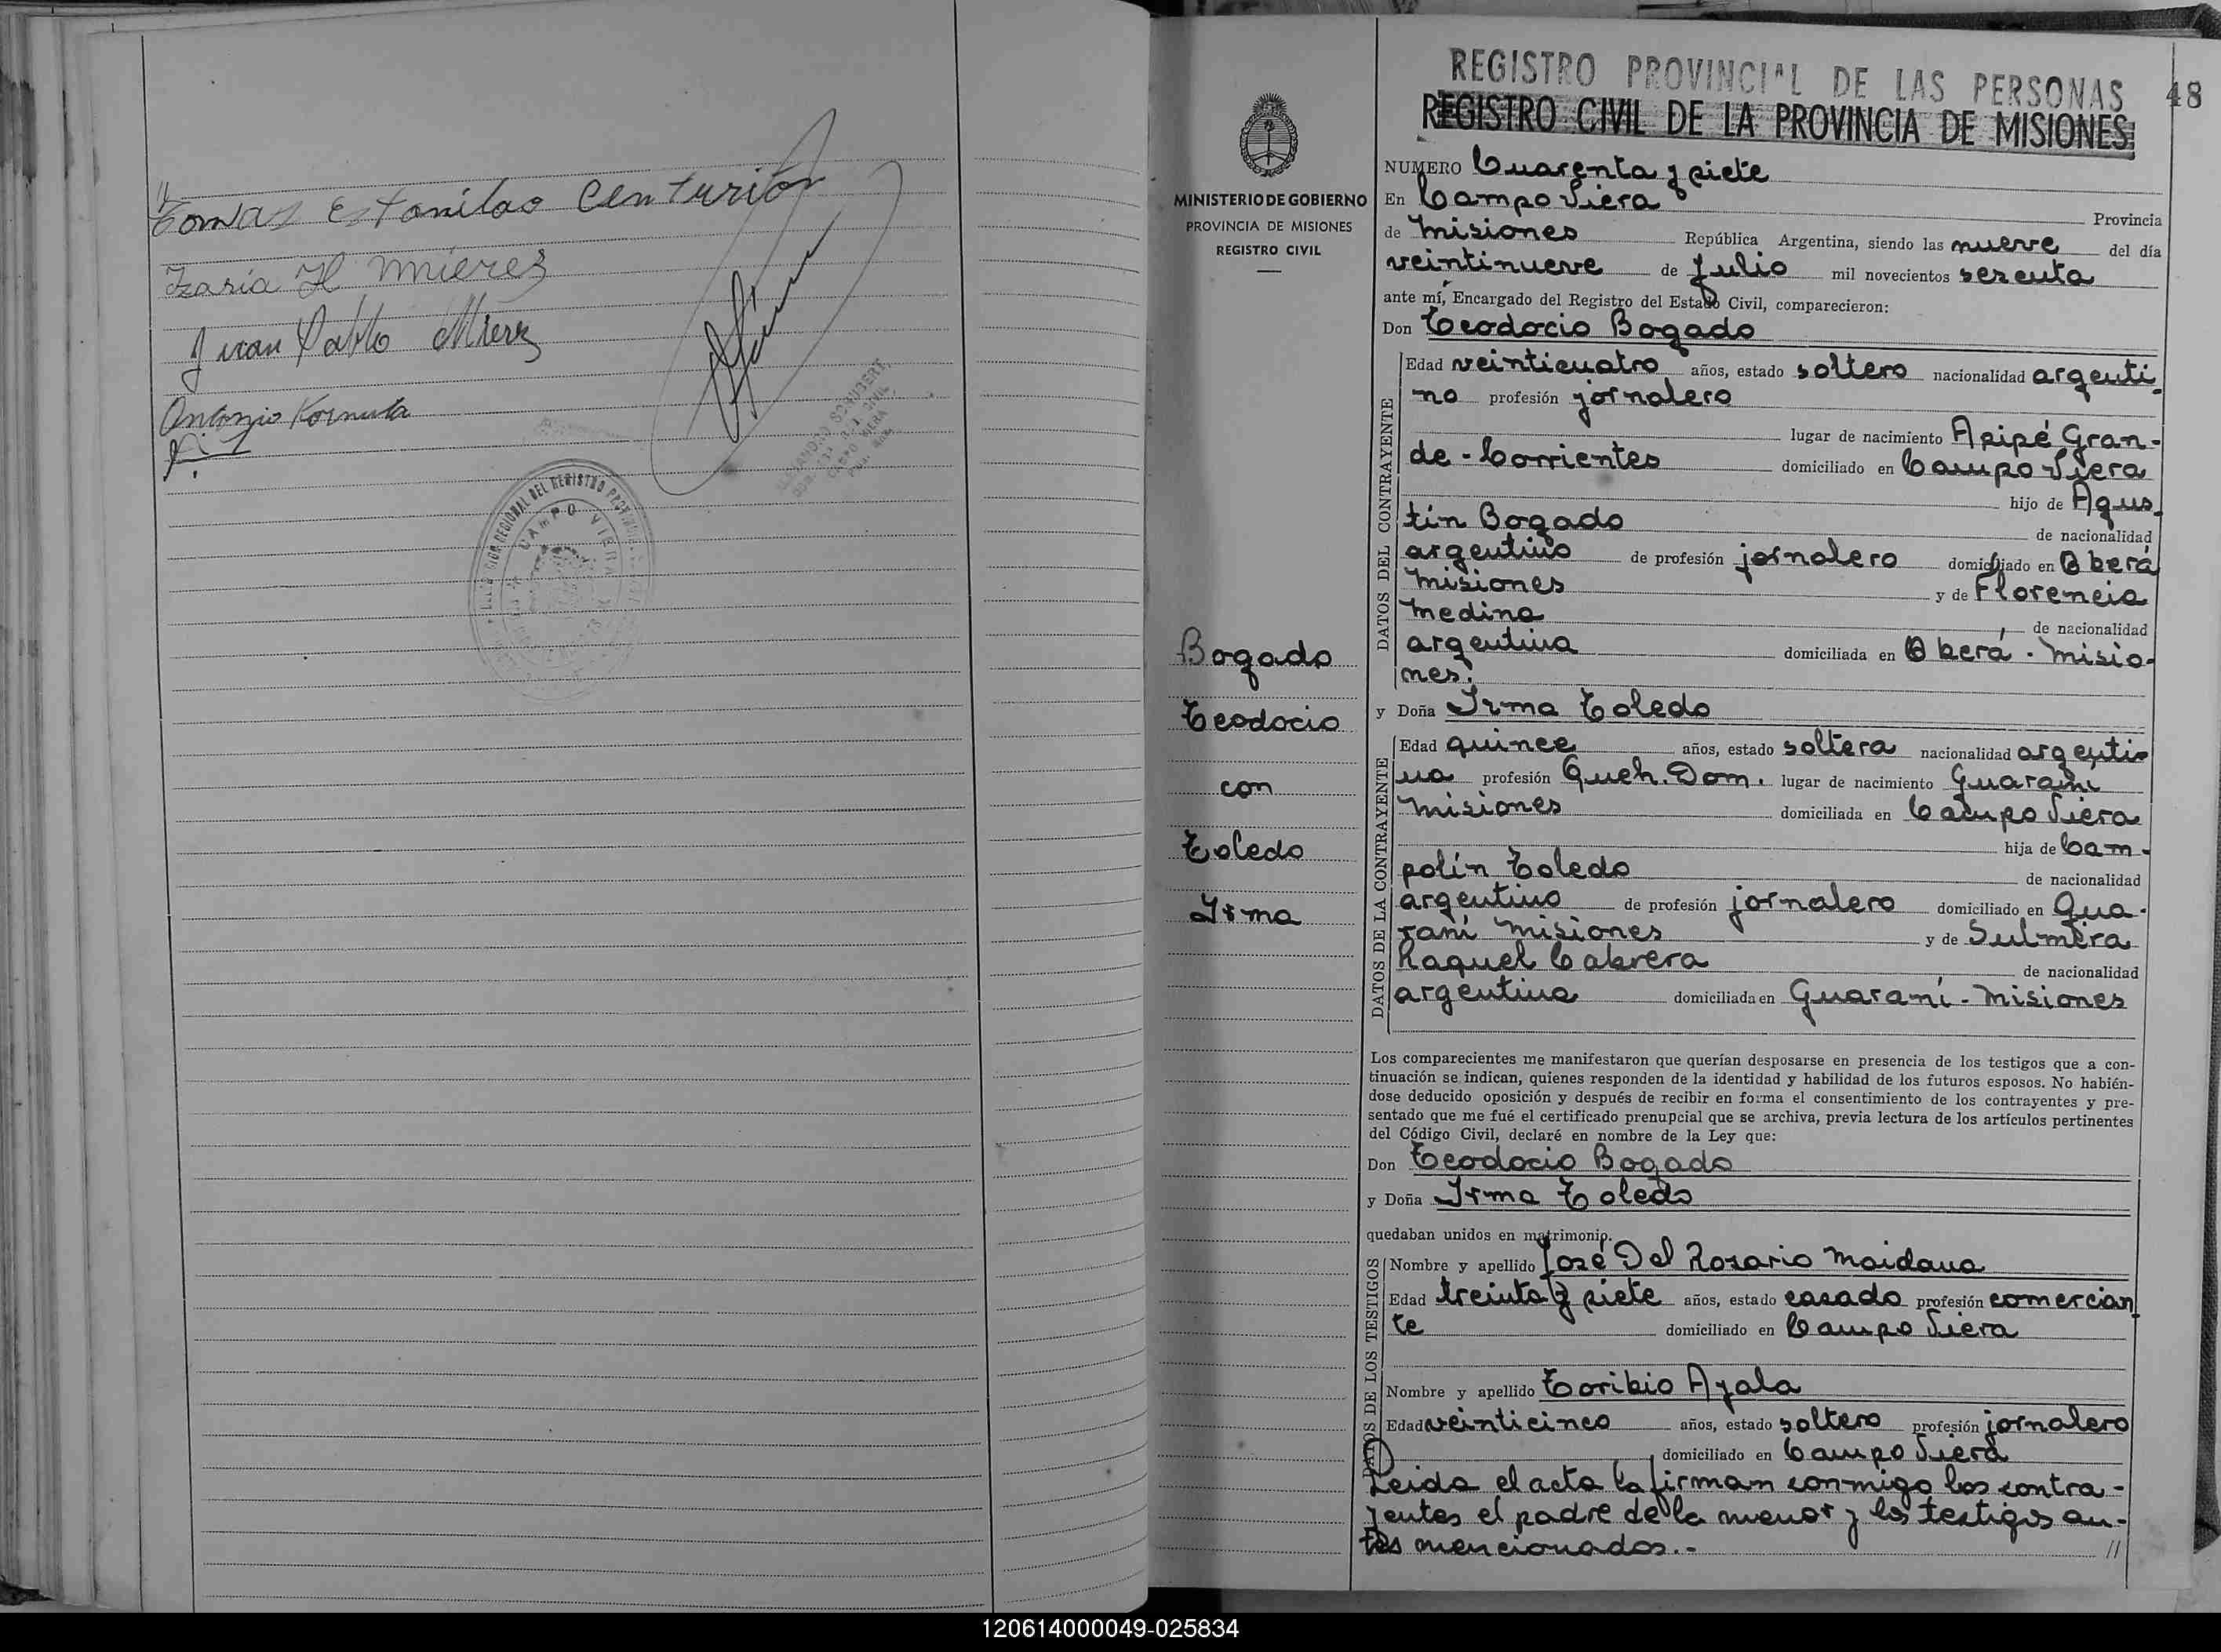 //
Tomas Estanilao Centurion
Izaria H Mieres
Juan Pablo Mierez
Antonio Kornuta
CAMPO VIERA
REGISTRO PROVINCIAL DE LAS PERSONAS
48
REGISTRO CIVIL DE LA PROVINCIA DE MISIONES
MINISTERIO DE GOBIERNO
PROVINCIA DE MISIONES
REGISTRO CIVIL
Bogado
Teodocio
con
Toledo
Irma
NUMERO Cuarenta y siete
En Campo Viera Provincia
de Misiones República Argentina, siendo las nueve del día
veintinueve de Julio mil novecientos sesenta
ante mí, Encargado del Registro del Estado Civil, comparecieron:
Don Teodocio Bogado
DATOS DEL CONTRAYENTE
Edad veinticuatro años, estado soltero nacionalidad argenti-
no profesión jornalero
lugar de nacimiento Apipé Gran-
de - Corrientes domiciliado en Campo Viera
hijo de Agus-
tín Bogado de nacionalidad
argentino de profesión jornalero domiciliado en Oberá
Misiones y de Florencia
Medina de nacionalidad
argentina domiciliada en Oberá - Misio-
nes.
y Doña Irma Toledo
DATOS DE LA CONTRAYENTE
Edad quince años, estado soltera nacionalidad argenti-
na profesión Queh. Dom. lugar de nacimiento Guaraní
Misiones domiciliada en Campo Viera
hija de Cam-
polín Toledo de nacionalidad
argentino de profesión jornalero domiciliado en Gua-
raní Misiones y de Sulmira
Raquel Cabrera de nacionalidad
argentina domiciliada en Guaraní - Misiones
Los comparecientes me manifestaron que querían desposarse en presencia de los testigos que a con-
tinuación se indican, quienes responden de la identidad y habilidad de los futuros esposos. No habién-
dose deducido oposición y después de recibir en forma el consentimiento de los contrayentes y pre-
sentado que me fué el certificado prenupcial que se archiva, previa lectura de los artículos pertinentes
del Código Civil, declaré en nombre de la Ley que:
Don Teodocio Bogado
y Doña Irma Toledo
quedaban unidos en matrimonio.
DATOS DE LOS TESTIGOS
Nombre y apellido José Del Rosario Maidana
Edad treinta y siete años, estado casado profesión comercian-
te domiciliado en Campo Viera
Nombre y apellido Toribio Ayala
Edad veinticinco años, estado soltero profesión jornalero
domiciliado en Campo Viera
Leida el acta la firman conmigo los contra-
yentes el padre de la menor y los testigos an-
tes mencionados.- //
120614000049-025834